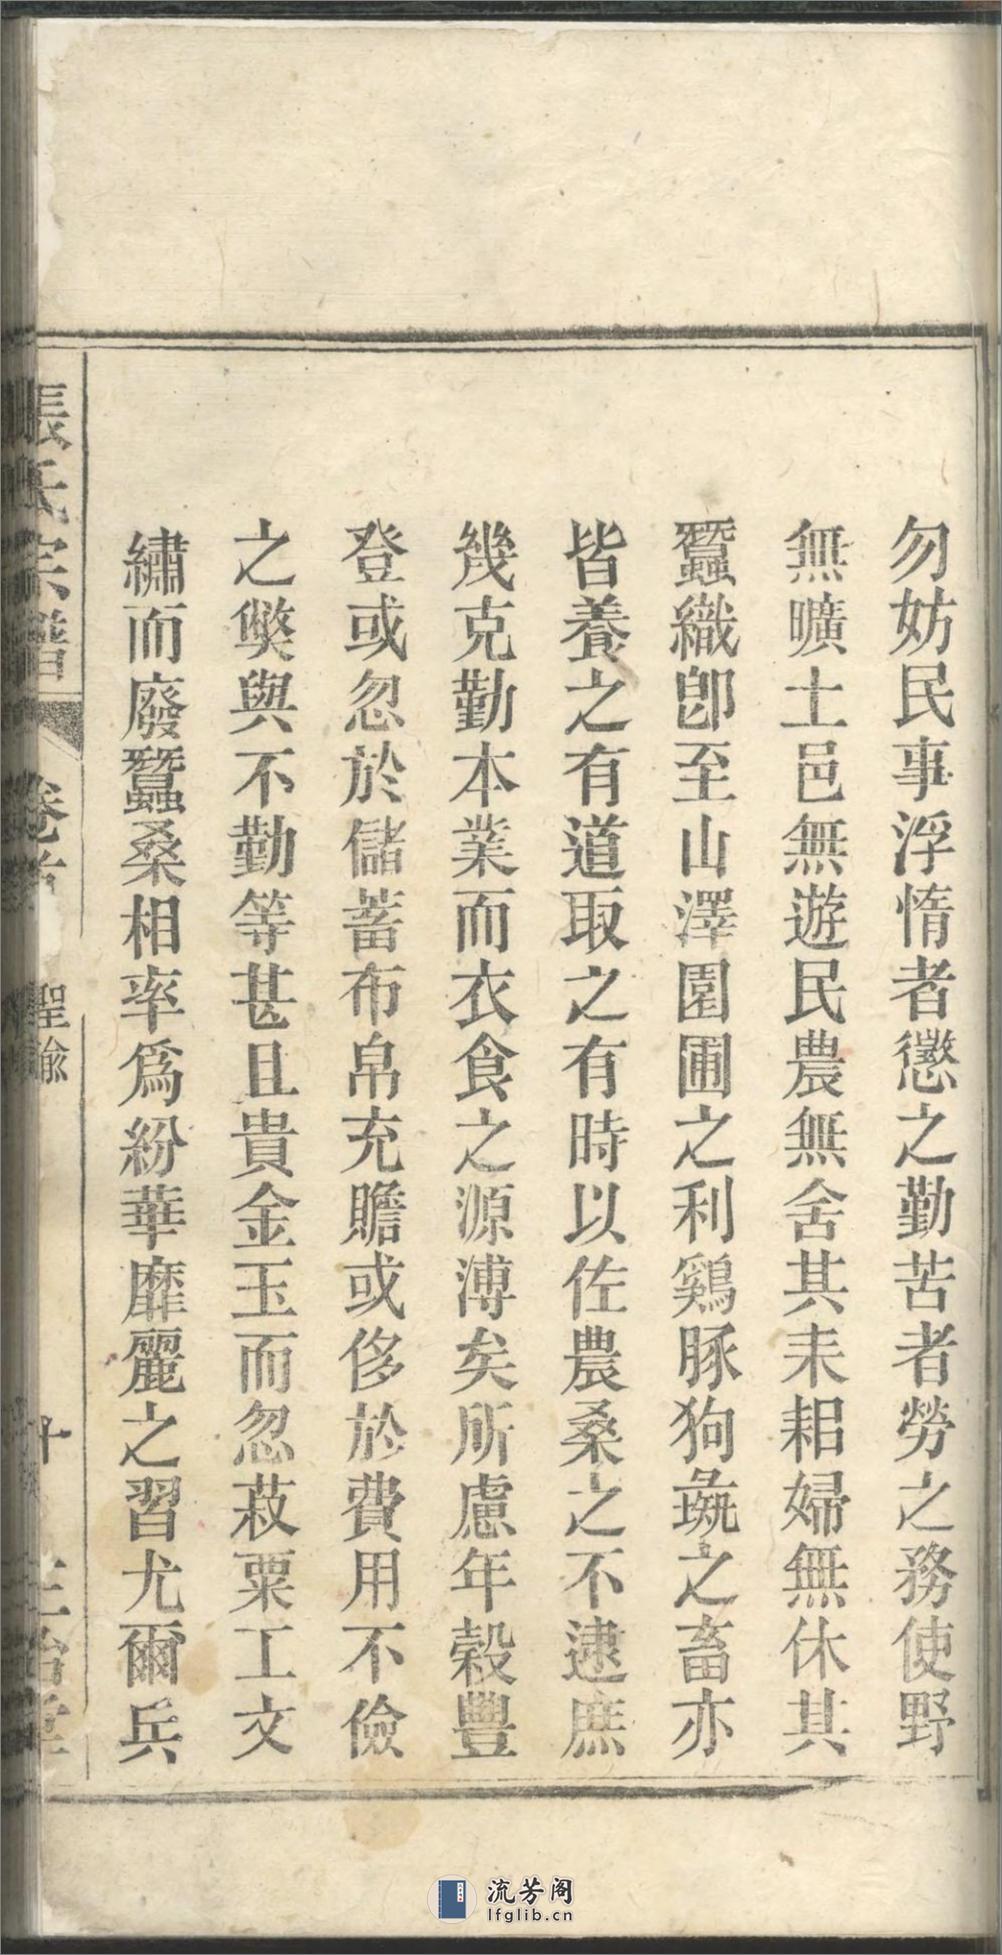 勿妨民事浮惰者懲之勤苦者勞之務使野
無曠土邑無遊民農無舍其耒耜婦無休其
蠶織卽至山澤園圃之利鷄豚狗彘之畜亦
皆養之有道取之有時以佐農桑之不逮庶
幾克勤本業而衣食之源溥矣所慮年穀豐
登或忽於儲蓄布帛充贍或侈於費用不儉
之獘與不勤等甚且貴金玉而忽菽粟工文
繡而廢蠶桑相率爲紛華靡麗之習尤爾兵
張氏宗譜 卷首 聖諭 十 三治堂
流芳阁
lfglib.cn